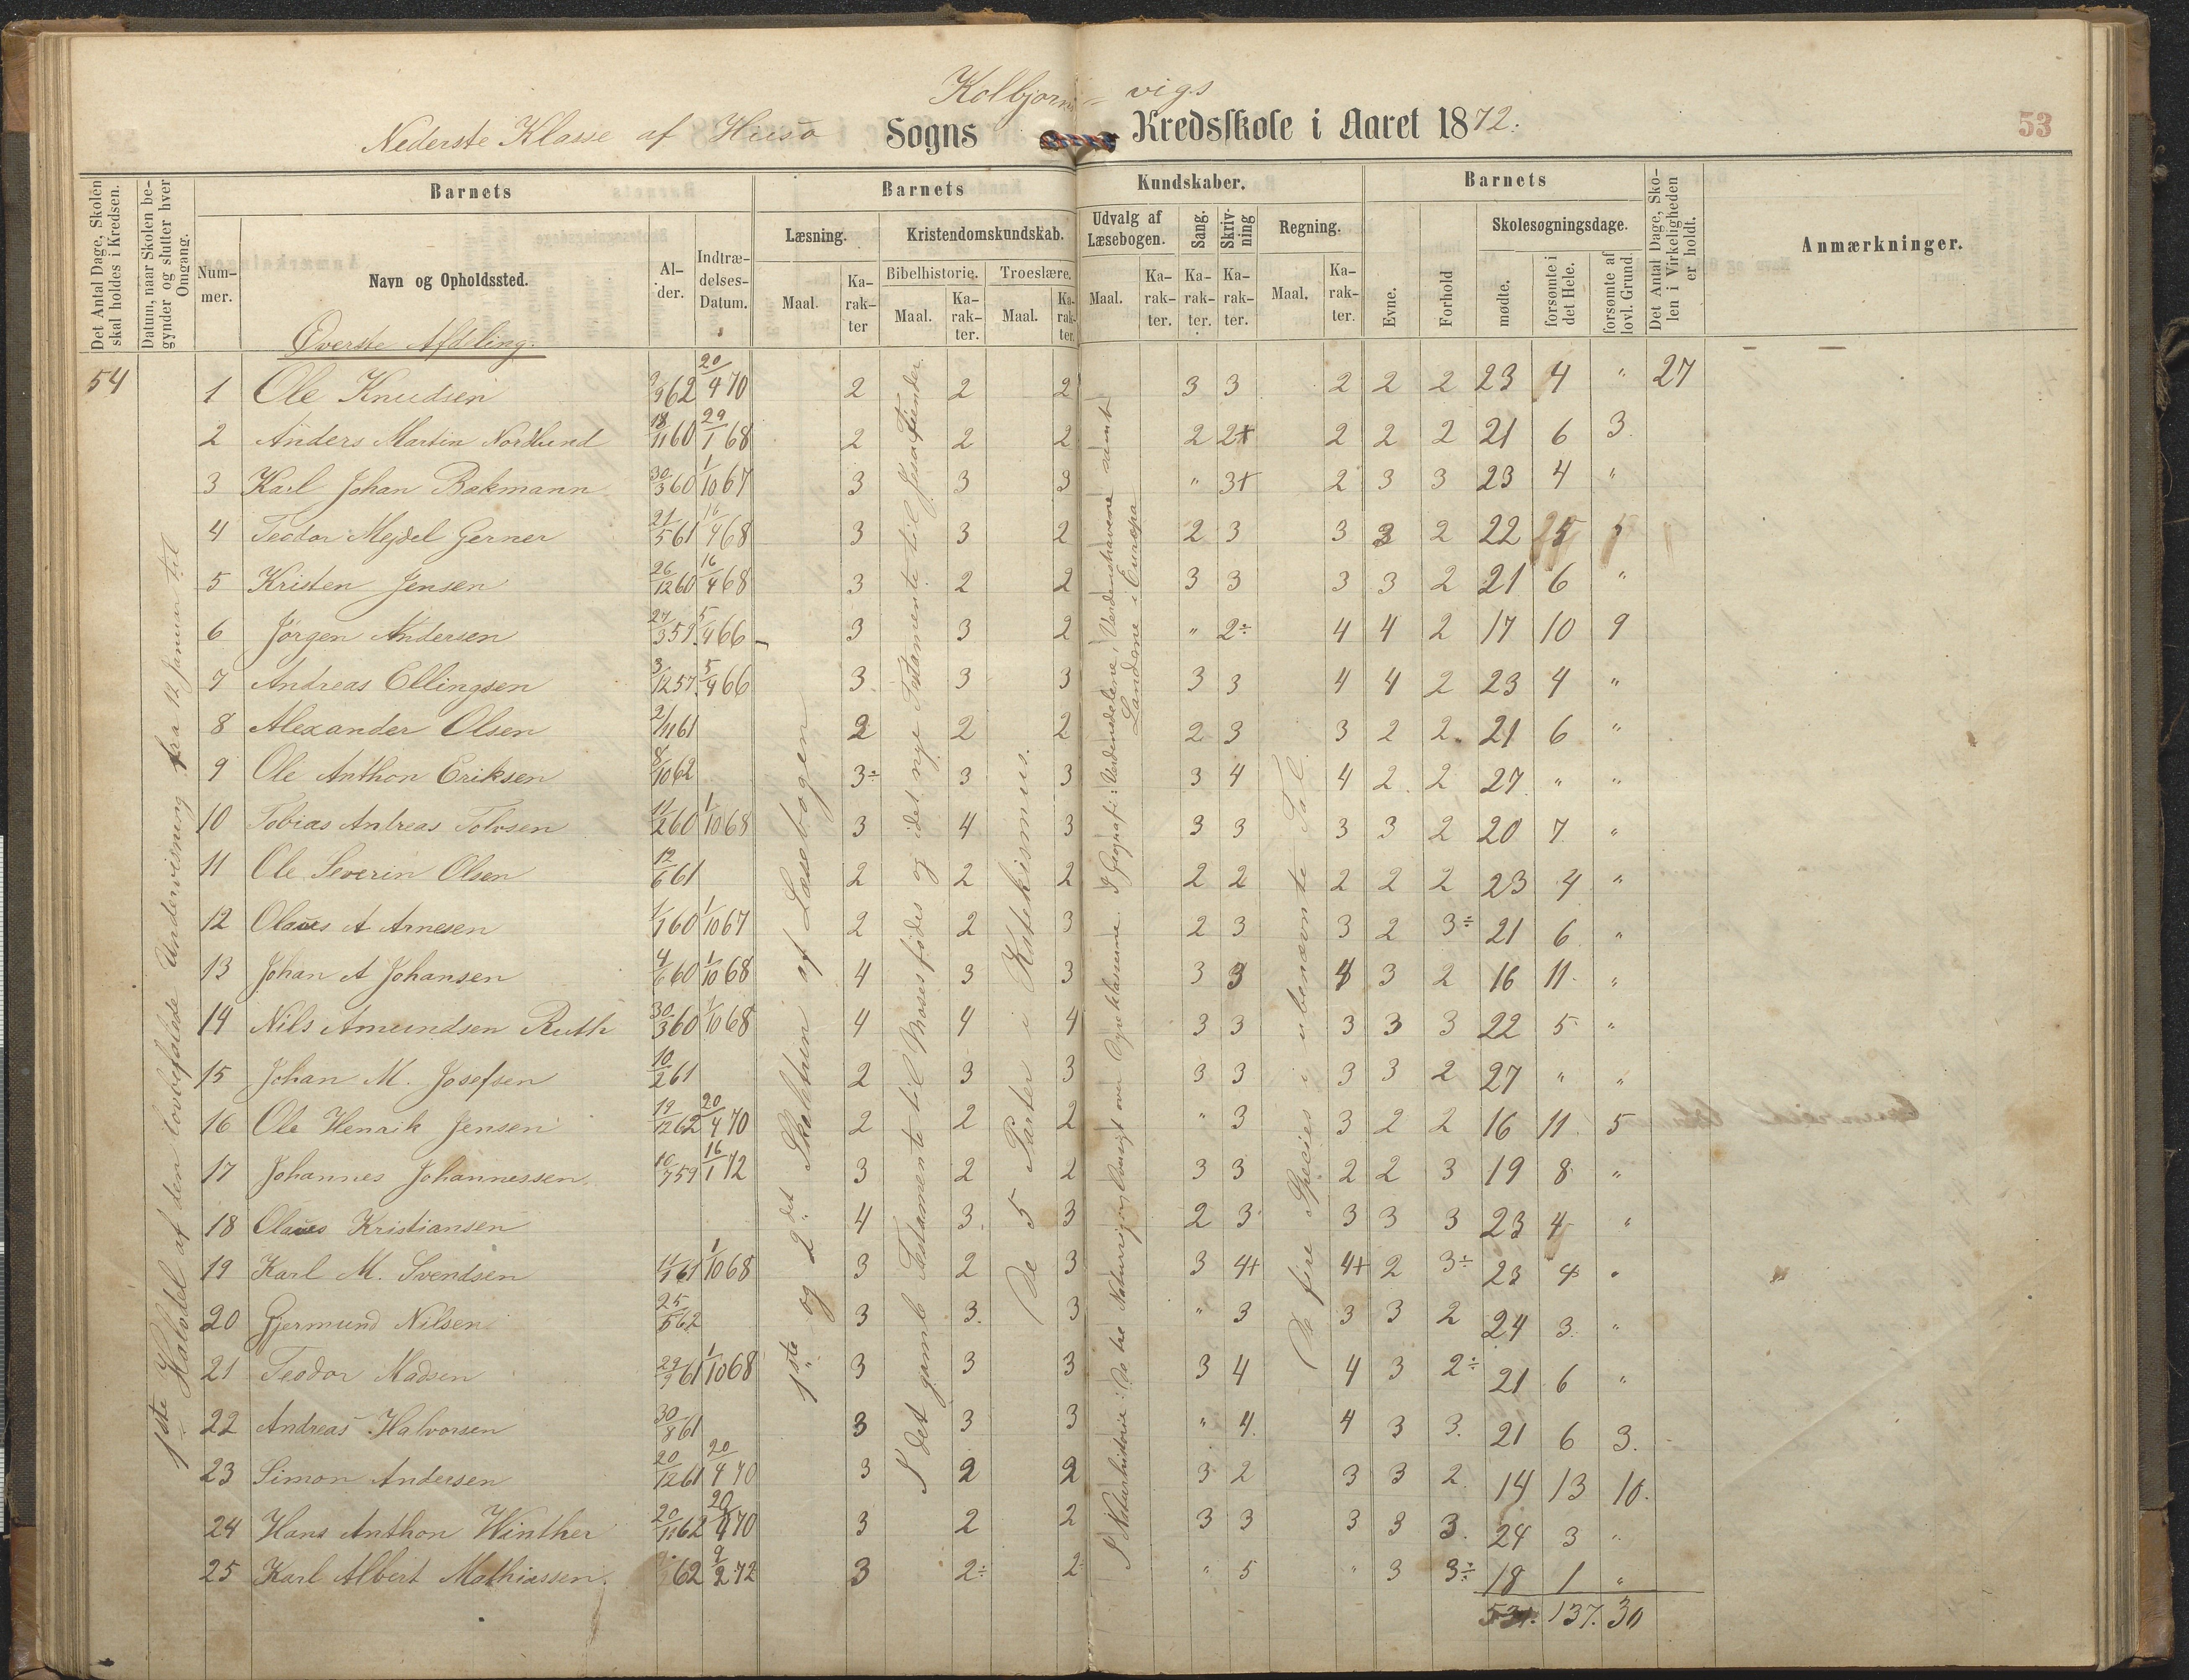 Kolbjorns- vigs
Nederste Klasse af Huso Sogns Kredsskole i Aaret 1872.
53
Det Antal Dage, Skolen skal holdes i Kredsen.
Datum, naar Skolen begynder og slutter hver Omgang.
Barnets
Barnets
Kundskaber.
Barnets
Det Antal Dage, Skolen i Virkeligheden er holdt.
Anmærkninger.
Nummer.
Navn og Opholdssted.
Alder.
Indtrædelses-Datum.
Læsning.
Kristendomskundskab.
Udvalg af Læsebogen.
Sang.
Skrivning
Regning.
Evne.
Forhold
Skolesøgningsdage.
Bibelhistorie.
Troeslære.
Maal.
Karakter
Maal.
Karakter.
Maal.
Karakter.
Maal.
Karakter.
Karakter.
Karakter.
Maal.
Karakter.
mødte.
forsømte i det Hele.
forsømte af lovl. Grund.
Overste Afdeling.
54
1ste Halvdel af den lovbefalede Undervisning fra 12 Januar til
1ste og 2det Skoletrin af Læsebogen
I det gamle Testamente til Moses fødes og i det nye Testamente til Jesu Fiender.
De 5 Parter i Katekismus.
I Naturhistorie: De tre Naturriger, Oversigt over Dyreklasserne. I Geografi: Verdensdelene, Verdenshavene samt
Landene i Europa
De fire Species i ubenævnte Tal.
1 Ole Knudsen 9/9 62 20/4 70 2 2 2 3 3 2 2 2 23 4 " 27
2 Anders Martin Nordlund 18/11 60 29/1 68 2 2 2 2 2+ 2 2 2 21 6 3.
3 Karl Johan Bakmann 30/3 60 1/10 67 3 3 3 " 3+ 2 3 3 23 4 "
4 Teodor Mejdel Gerner 21/5 61 16/4 68 3 3 2 2 3 3 3 2 22 5 5
5 Kristen Jensen 26/12 60 16/4 68 3 2 2 3 3 3 3 2 21 6 "
6 Jörgen Andersen 27/3 59 5/4 66 3 3 2 " 2÷ 4 4 2 17 10 9
7 Andreas Ellingsen 3/12 57 5/4 66 3. 3 3 3 3 4 4 2 23 4 "
8 Alexander Olsen 2/11 61 2 2 2 2 3 3 2 2 21 6 "
9 Ole Anthon Eriksen 8/10 62 3÷ 3 3 3 4 4 2 2 27 " "
10 Tobias Andreas Tolvsen 11/2 60 1/10 68 3 4 3 3 3 3 3 2 20 7 "
11 Ole Severin Olsen 12/6 61 2 2 2 2 2 2 2 2 23 4 "
12 Olaus A Arnesen 1/1 60 1/10 67 2 2 3 2 3 3 2 3÷ 21 6 "
13 Johan A Johansen 4/6 60 1/10 68 4 3 3 3 3 4 3 2 16 11 "
14 Nils Amundsen Ruth 30/3 60 1/10 68 4 4 4 3 3 3 3 3 22 5 "
15 Johan M. Josefsen 10/2 61 2 3 3 3 3 3 3 2 27 " "
16 Ole Henrik Jensen 19/12 62 20/4 70 2 2 2 " 3 3 2 2 16 11 5
17 Johannes Johannessen. 10/7 59 16/1 72 3 2 2 3 3 2 2 3 19 8 "
18 Olaus Kristiansen 4 3. 3 2 3 3 3 3 23 4 "
19 Karl M. Svendsen 4/1 61 1/10 68 3 2 3 3 4+ 4+ 2 3÷ 23 4 "
20 Gjermund Nilsen 25/5 62 3 3. 3 " 3 3 3 2 24 3 "
21 Teodor Madsen 29/9 61 1/10 68 3 3 3 3 4 4 3 2÷ 21 6 "
22 Andreas Halvorsen 30/8 61 3 3 3 " 4 4 3 3. 21 6 3.
23 Simon Andersen 20/12 61 20/4 70 3 2 2 3 2 3 3 2 14 13 10.
24 Hans Anthon Winther 20/11 62 20/4 70 3 2 2 3 3 3 3 3. 24 3 "
25 Karl Albert Mathiassen. 62 9/2 72 3 2÷ 2 " 5 " 3 3÷ 18 1 "
531. 137. 30